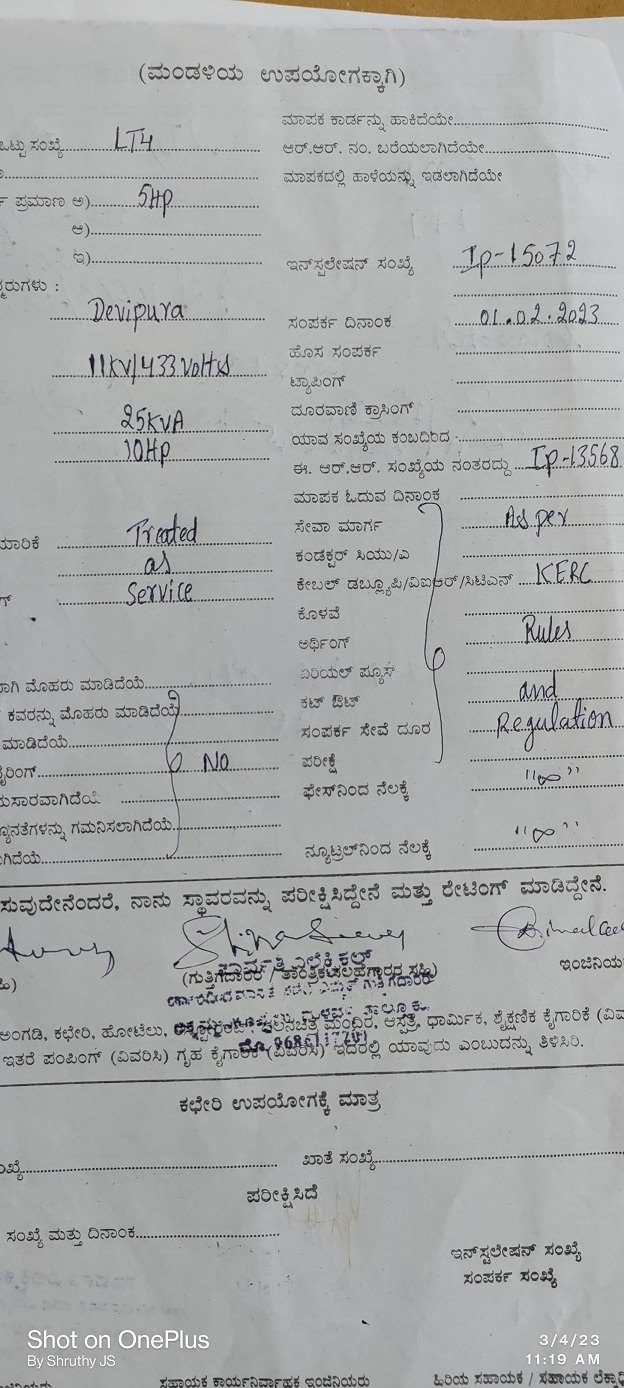 (ಮಂಡಳಿಯ ಉಪಯೋಗಕ್ಕಾಗಿ)
ಮಾಪಕ ಕಾರ್ಡನ್ನು ಹಾಕಿದೆಯೇ
ಒಟ್ಟು ಸಂಖ್ಯೆ LT4
ಆರ್.ಆರ್. ನಂ. ಬರೆಯಲಾಗಿದೆಯೇ
ಮಾಪಕದಲ್ಲಿ ಹಾಳೆಯನ್ನು ಇಡಲಾಗಿದೆಯೇ
ಪ್ರಮಾಣ ಅ) 5HP
ಆ)
ಇ)
ಇನ್‌ಸ್ಟಲೇಷನ್ ಸಂಖ್ಯೆ Ip-15072
Devipura
ಸಂಪರ್ಕ ದಿನಾಂಕ 01.02.2023
ಹೊಸ ಸಂಪರ್ಕ
11KV/433 Volts
ಟ್ಯಾಪಿಂಗ್
25KVA
ದೂರವಾಣಿ ಕ್ರಾಸಿಂಗ್
10HP
ಯಾವ ಸಂಖ್ಯೆಯ ಕಂಬದಿಂದ
ಈ. ಆರ್.ಆರ್. ಸಂಖ್ಯೆಯ ನಂತರದ್ದು Ip-13568
ಮಾಪಕ ಓದುವ ದಿನಾಂಕ
Treated
ಸೇವಾ ಮಾರ್ಗ As per
as
ಕಂಡಕ್ಟರ್ ಸಿಯು/ಎ
Service
ಕೇಬಲ್ ಡಬ್ಲ್ಯೂಪಿ/ವಿಐಆರ್/ಸಿಟಿಎಸ್ KERC
ಕೊಳವೆ
ಅರ್ಥಿಂಗ್ Rules
ಏರಿಯಲ್ ಫ್ಯೂಸ್
ಮೊಹರು ಮಾಡಿದೆಯೆ
ಕಟ್ ಔಟ್ and
ಕವರನ್ನು ಮೊಹರು ಮಾಡಿದೆಯೆ
ಸಂಪರ್ಕ ಸೇವೆ ದೂರ Regulation
ಮಾಡಿದೆಯೆ
ಪರೀಕ್ಷೆ
No
ಫೇಸ್‌ನಿಂದ ನೆಲಕ್ಕೆ "∞"
ಗಮನಿಸಲಾಗಿದೆಯೆ
ನ್ಯೂಟ್ರಲ್‌ನಿಂದ ನೆಲಕ್ಕೆ "∞"
ನಾನು ಸ್ಥಾವರವನ್ನು ಪರೀಕ್ಷಿಸಿದ್ದೇನೆ ಮತ್ತು ರೇಟಿಂಗ್ ಮಾಡಿದ್ದೇನೆ.
(ಗುತ್ತಿಗೆದಾರರ / ತಾಂತ್ರಿಕ
ಅಂಗಡಿ, ಕಛೇರಿ, ಹೋಟೆಲು, ಮಂದಿರ, ಆಸ್ಪತ್ರೆ, ಧಾರ್ಮಿಕ, ಶೈಕ್ಷಣಿಕ ಕೈಗಾರಿಕೆ
ಇತರೆ ಪಂಪಿಂಗ್ (ವಿವರಿಸಿ) ಗೃಹ ಕೈಗಾರಿಕೆ (ವಿವರಿಸಿ) ಇದರಲ್ಲಿ ಯಾವುದು ಎಂಬುದನ್ನು ತಿಳಿಸಿರಿ.
ಕಛೇರಿ ಉಪಯೋಗಕ್ಕೆ ಮಾತ್ರ
ಖಾತೆ ಸಂಖ್ಯೆ
ಪರೀಕ್ಷಿಸಿದೆ
ಸಂಖ್ಯೆ ಮತ್ತು ದಿನಾಂಕ
ಇನ್‌ಸ್ಟಲೇಷನ್ ಸಂಖ್ಯೆ
ಸಂಪರ್ಕ ಸಂಖ್ಯೆ
Shot on OnePlus
By Shruthy JS
3/4/23
11:19 AM
ಸಹಾಯಕ ಕಾರ್ಯನಿರ್ವಾಹಕ ಇಂಜಿನಿಯರು
ಹಿರಿಯ ಸಹಾಯಕ / ಸಹಾಯಕ